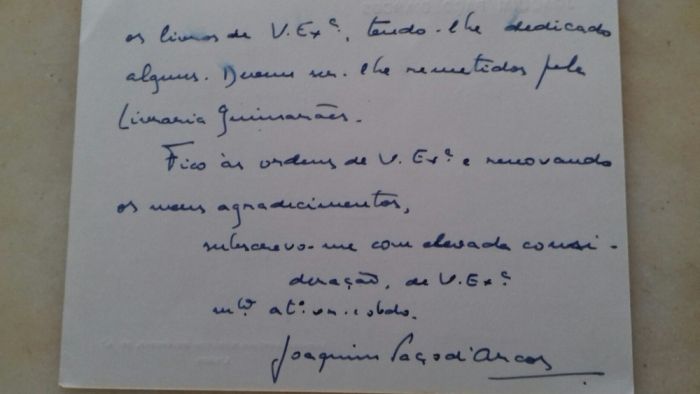 os livros de V. Exª, tendo-lhe dedicado
alguns. Devem ser-lhe remetidos pela
Livraria Guimarães.
Fico às ordens de V. Exª e renovando
os meus agradecimentos,
subscrevo-me com elevada consi-
deração, de V. Exª
mtº atº vn. e obdo.
Joaquim Paço d'Arcos